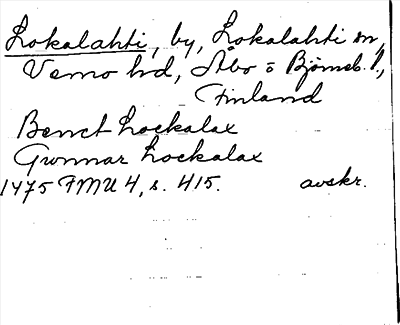 Lokalahti, by, Lokalahti sn,
Vemo hd, Åbo o Björneb. l,
Finland
Benct Lockalax
Gwnnar Lockalax
1475 FMU 4, s. 415. avskr.